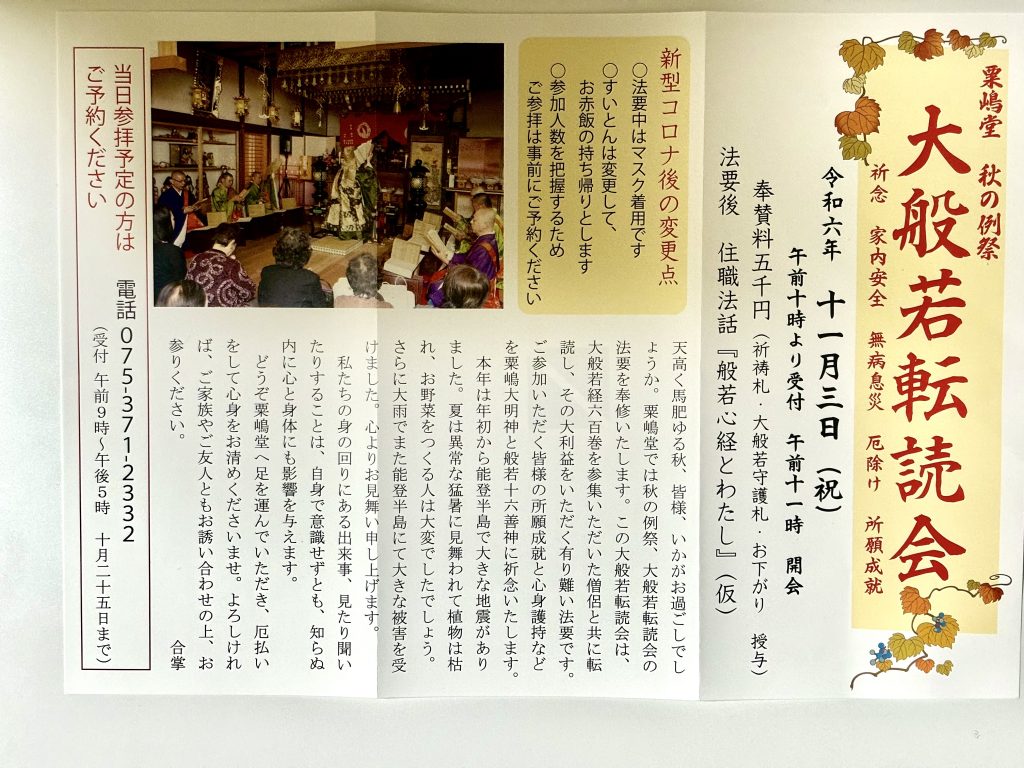 粟嶋堂 秋の例祭
大般若転読会
祈念 家内安全 無病息災 厄除け 所願成就
令和六年 十一月三日（祝）
午前十時より受付 午前十一時 開会
奉賛料五千円（祈祷札・大般若守護札・お下がり 授与）
法要後 住職法話『般若心経とわたし』（仮）
新型コロナ後の変更点
○法要中はマスク着用です
○すいとんは変更して、
お赤飯の持ち帰りとします
○参加人数を把握するため
ご参拝は事前にご予約ください
天高く馬肥ゆる秋、皆様、いかがお過ごしでし
ょうか。粟嶋堂では秋の例祭、大般若転読会の
法要を奉修いたします。この大般若転読会は、
大般若経六百巻を参集いただいた僧侶と共に転
読し、その大利益をいただく有り難い法要です。
ご参加いただく皆様の所願成就と心身護持など
を粟嶋大明神と般若十六善神に祈念いたします。
本年は年初から能登半島で大きな地震があり
ました。夏は異常な猛暑に見舞われて植物は枯
れ、お野菜をつくる人は大変でしたでしょう。
さらに大雨でまた能登半島にて大きな被害を受
けました。心よりお見舞い申し上げます。
私たちの身の回りにある出来事、見たり聞い
たりすることは、自身で意識せずとも、知らぬ
内に心と身体にも影響を与えます。
どうぞ粟嶋堂へ足を運んでいただき、厄払い
をして心身をお清めくださいませ。よろしけれ
ば、ご家族やご友人ともお誘い合わせの上、お
参りください。
合掌
当日参拝予定の方は
ご予約ください
電話 075-371-2332
（受付 午前9時～午後5時 十月二十五日まで）